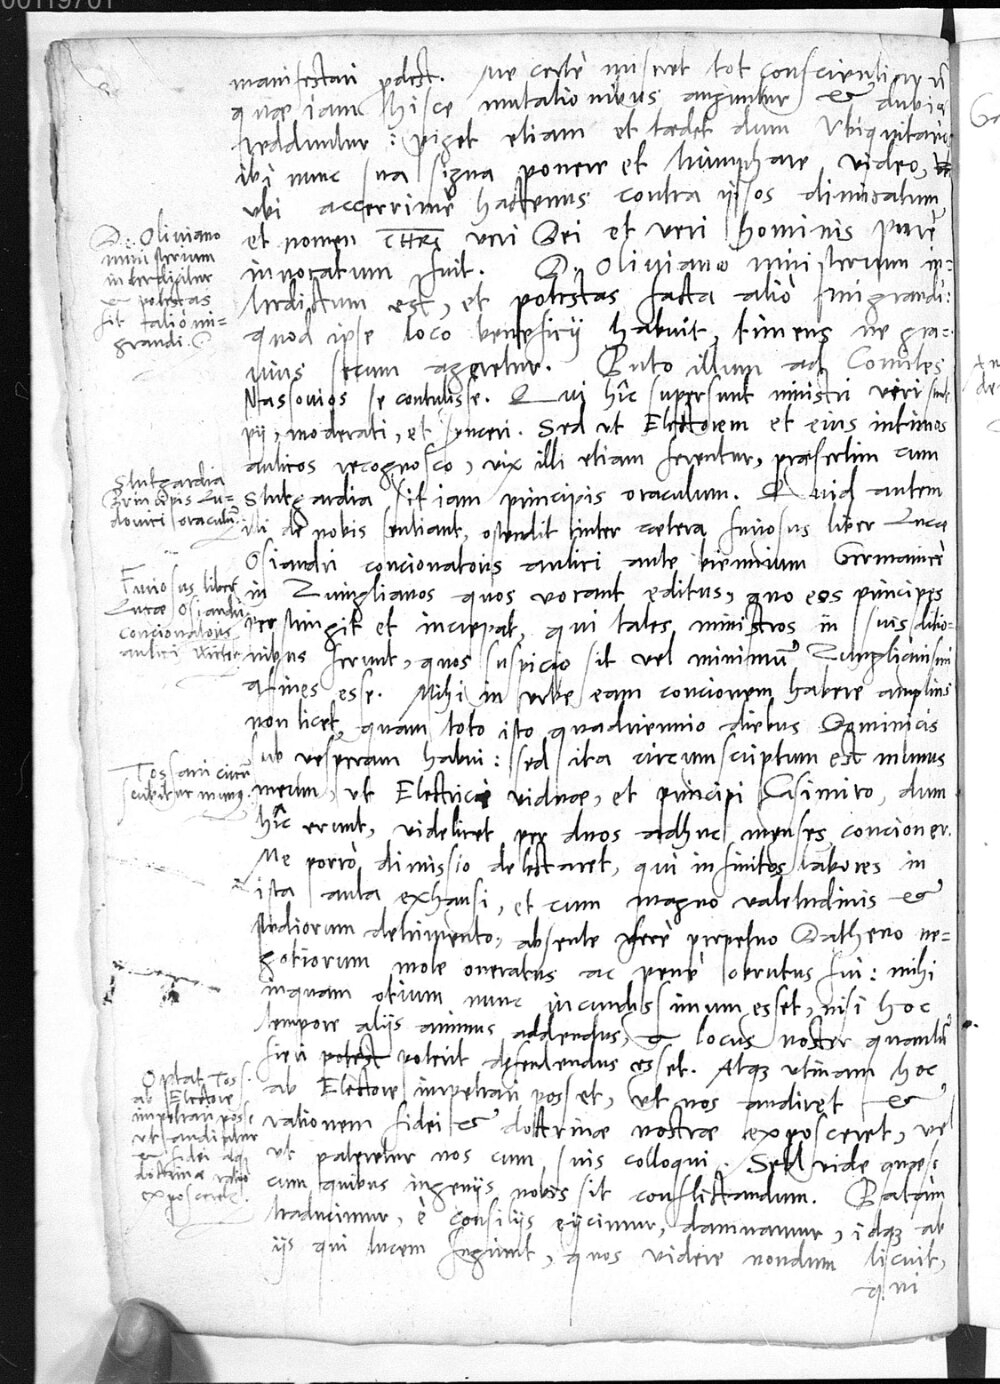 00119701
manifestari potest. Me certè miseret tot conscientiarũ
quae iam hisce mutationibus anguntur & dubiae
redduntur: piget etiam et taedet dum Vbiquitarios
ibi nunc sua signa ponere et triumphare video,
vbi accerrimè hactenus contra ipsos dimicatum
et nomen CHRI veri Dei et veri hominis purè
inuocatum fuit. D. Oliuiano ministerium in-
terdictum est, et potestas facta aliò migrandi:
quod ipse loco beneficij habuit, timens ne gra-
uius secum ageretur. Puto illum ad Comites
Nassouios se contulisse. Qui hîc supersunt ministri viri sunt
pij, moderati, et synceri. Sed vt Electorem et eius intimos
aulicos recognosco, vix illi etiam ferentur, praesertim cum
Stutgardia sit iam principis oraculum. Quid autem
illi de nobis sentiant, ostendit inter caetera furiosus liber Lucae
Osiandri concionatoris aulici ante biennium Germanicè
in Zuinglianos quos vocant editus, quo eos principes
perstringit et increpat, qui tales ministros in suis ditio-
nibus ferunt, quos suspicio sit vel minimũ Zuinglianismi
afines esse. Mihi in vrbe eam concionem habere amplius
non licet, quam toto isto quadriennio diebus Dominicis
sub vesperam habui: sed ita circumscriptum est munus
meum, vt Electrici viduae, et principi Casimiro, dum
hîc erunt, videlicet per duos adhuc menses concioner.
Me porrò dimissio delectaret, qui infinitos labores in
ista aula exhausi, et cum magno valetudinis &
studiorum detrimento, absente ferè perpetuo Datheno ne-
gotiorum mole oneratus ac penè obrutus fui: mihi
inquam otium nunc iucundissimum esset, nisi hoc
tempore alijs animus addendus, & locus noster quantũ
fieri potest poterit defendendus esset. Atque vtinam hoc
ab Electore impetrari posset, vt nos audiret &
rationem fidei & doctrinae nostrae exposceret, vel
vt pateretur nos cum suis colloqui. Sed vide quaeso
cum quibus ingenijs nobis sit conflictandum. Palàm
traducimur, è consilijs eijcimur, damnamur, idque ab
ijs qui lucem fugiunt, quos videre nondum licuit,
qui
D. Oliuiano
ministerium
interdicitur
& potestas
fit aliò mi-
grandi.
Stutgardia
Principis Lu-
douici oraculũ
Furiosus liber
Lucae Osiandri
concionatoris
aulici Wirter
Tossani circũ
scribitur munus.
Optat Toss.
ab Electore
impetrari posse
vt audiatur
& fidei atque
doctrinae ratio
exposcere.